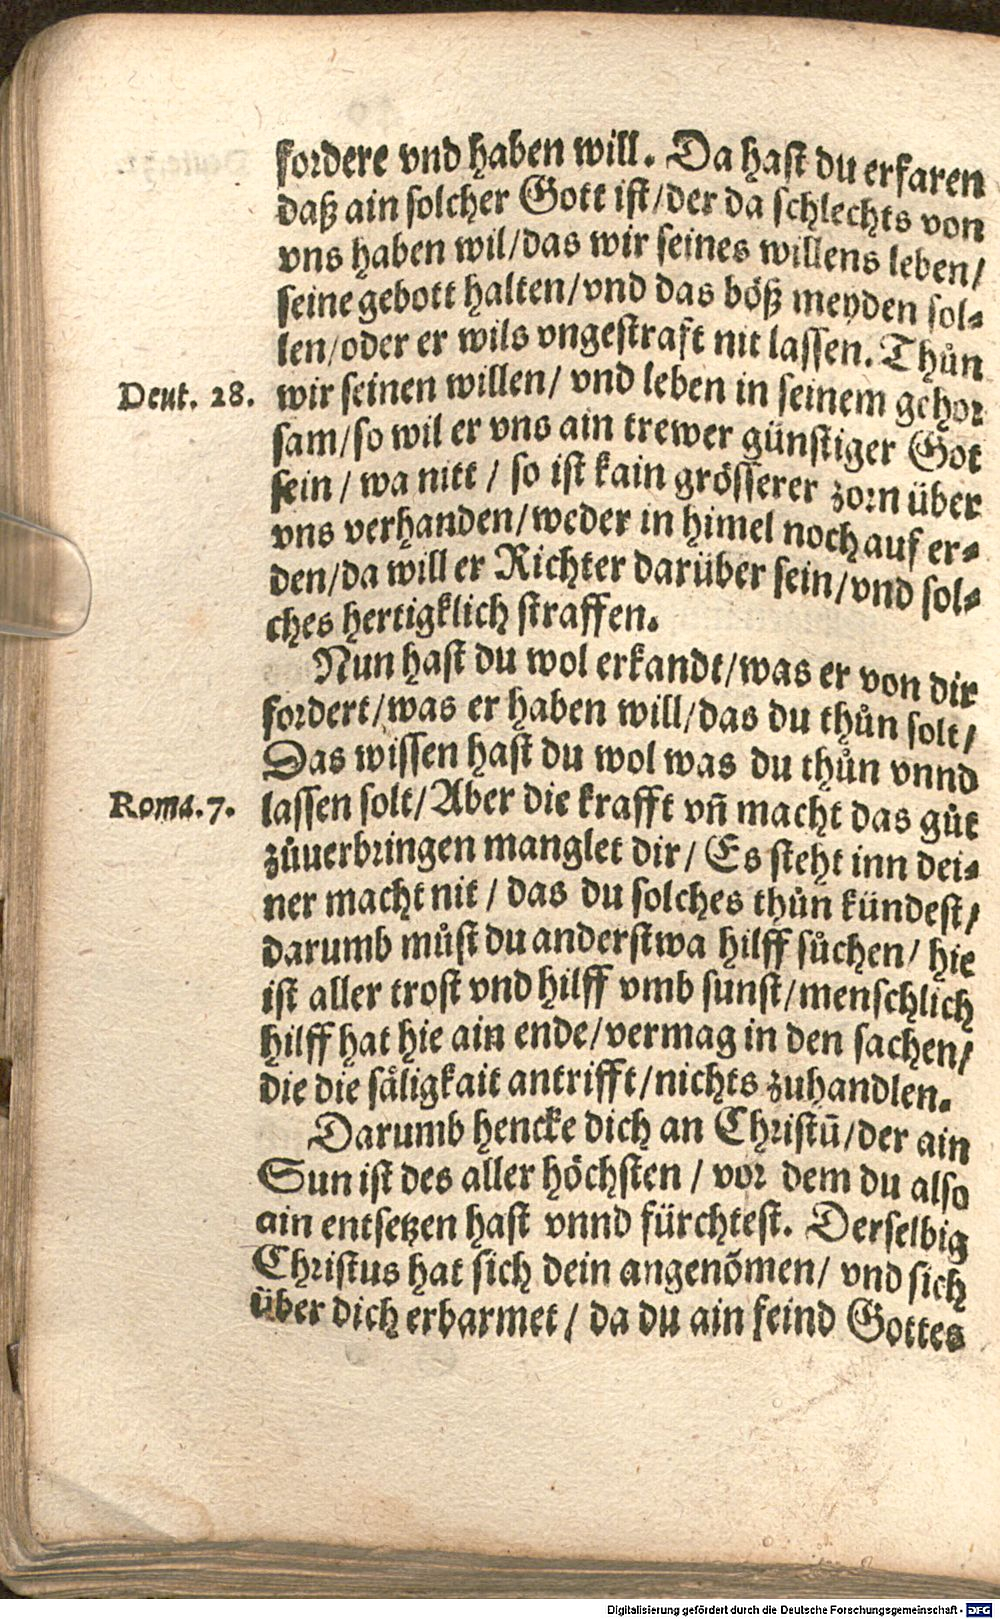 fordere vnd haben will. Da hast du erfaren
daß ain solcher Gott ist/der da schlechts von
vns haben wil/das wir seines willens leben/
seine gebott halten/vnd das böß meyden sol⸗
len/oder er wils vngestraft nit lassen. Thůn
Deut. 28. wir seinen willen/ vnd leben in seinem gehor
sam/so wil er vns ain trewer günstiger Got
sein / wa nitt / so ist kain grösserer zorn über
vns verhanden/weder in himel noch auf er⸗
den/da will er Richter darüber sein/vnd sol⸗
ches hertigklich straffen.
Nun hast du wol erkandt/was er von dir
fordert/was er haben will/das du thůn solt/
Das wissen hast du wol was du thůn vnnd
Roma. 7. lassen solt/Aber die krafft vñ macht das gůt
zůuerbringen manglet dir/ Es steht inn dei⸗
ner macht nit / das du solches thůn kündest/
darumb můst du anderstwa hilff sůchen/ hie
ist aller trost vnd hilff vmb sunst/menschlich
hilff hat hie ain ende/vermag in den sachen/
die die säligkait antrifft/nichts zuhandlen.
Darumb hencke dich an Christū/der ain
Sun ist des aller höchsten / vor dem du also
ain entsetzen hast vnnd fürchtest. Derselbig
Christus hat sich dein angenōmen/ vnd sich
über dich erbarmet / da du ain feind Gottes
Digitalisierung gefördert durch die Deutsche Forschungsgemeinschaft - DFG